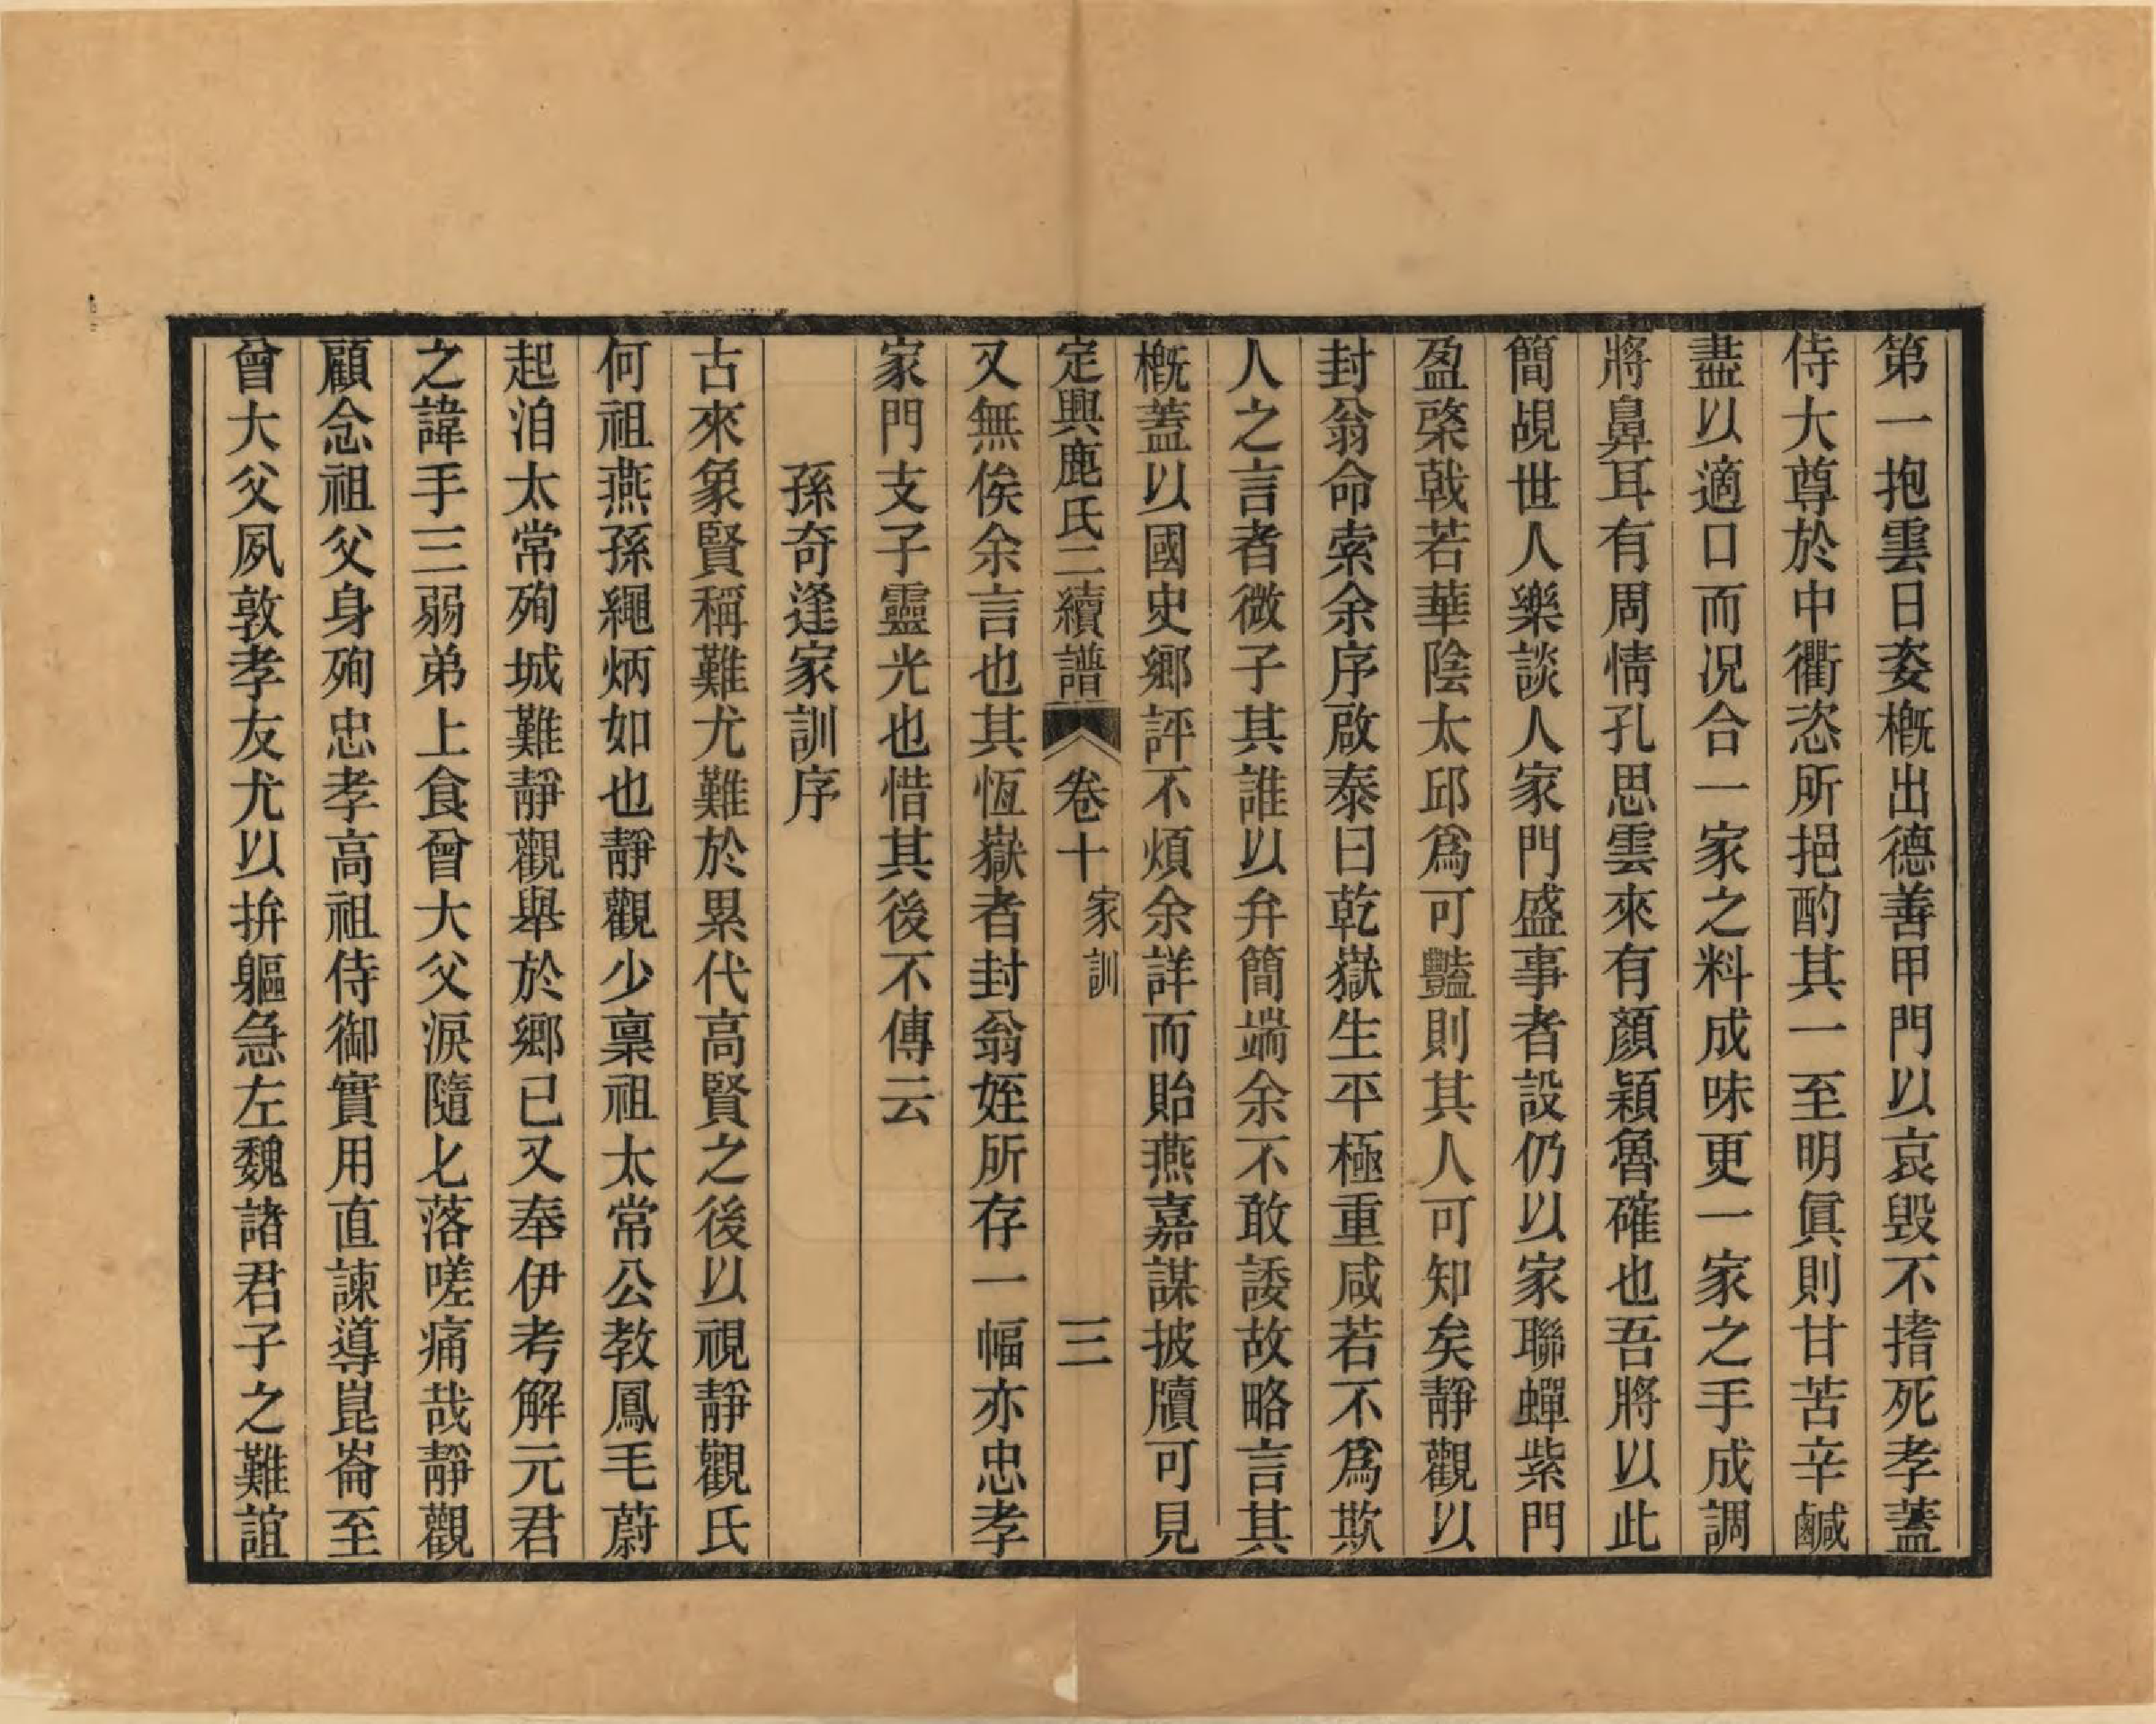 第一抱雲日姿槪出德善甲門以哀毀不揝死孝蓋
侍大尊於中衢恣所挹酌其一至明眞則甘苦辛鹹
盡以適口而况合一家之料成味更一家之手成調
將鼻耳有周情孔思雲來有顏穎魯確也吾將以此
簡覘世人樂談人家門盛事者設仍以家聯蟬紫門
盈棨戟若華陰太邱爲可豔則其人可知矣靜觀以
封翁命索余序啟泰曰乾嶽生平極重咸若不爲欺
人之言者微子其誰以弁簡端余不敢諉故略言其
槪蓋以國史鄉評不煩余詳而貽燕嘉謀披牘可見
定興鹿氏二續譜 卷十 家訓 三
又無俟余言也其恆嶽者封翁姪所存一幅亦忠孝
家門支子靈光也惜其後不傳云
孫奇逢家訓序
古來象賢稱難尤難於累代高賢之後以視靜觀氏
何祖燕孫繩炳如也靜觀少稟祖太常公教鳳毛蔚
起洎太常殉城難靜觀舉於鄉已又奉伊考解元君
之諱手三弱弟上食曾大父淚隨匕落嗟痛哉靜觀
顧念祖父身殉忠孝高祖侍御實用直諫導崑崙至
曾大父夙敦孝友尤以拚軀急左魏諸君子之難誼